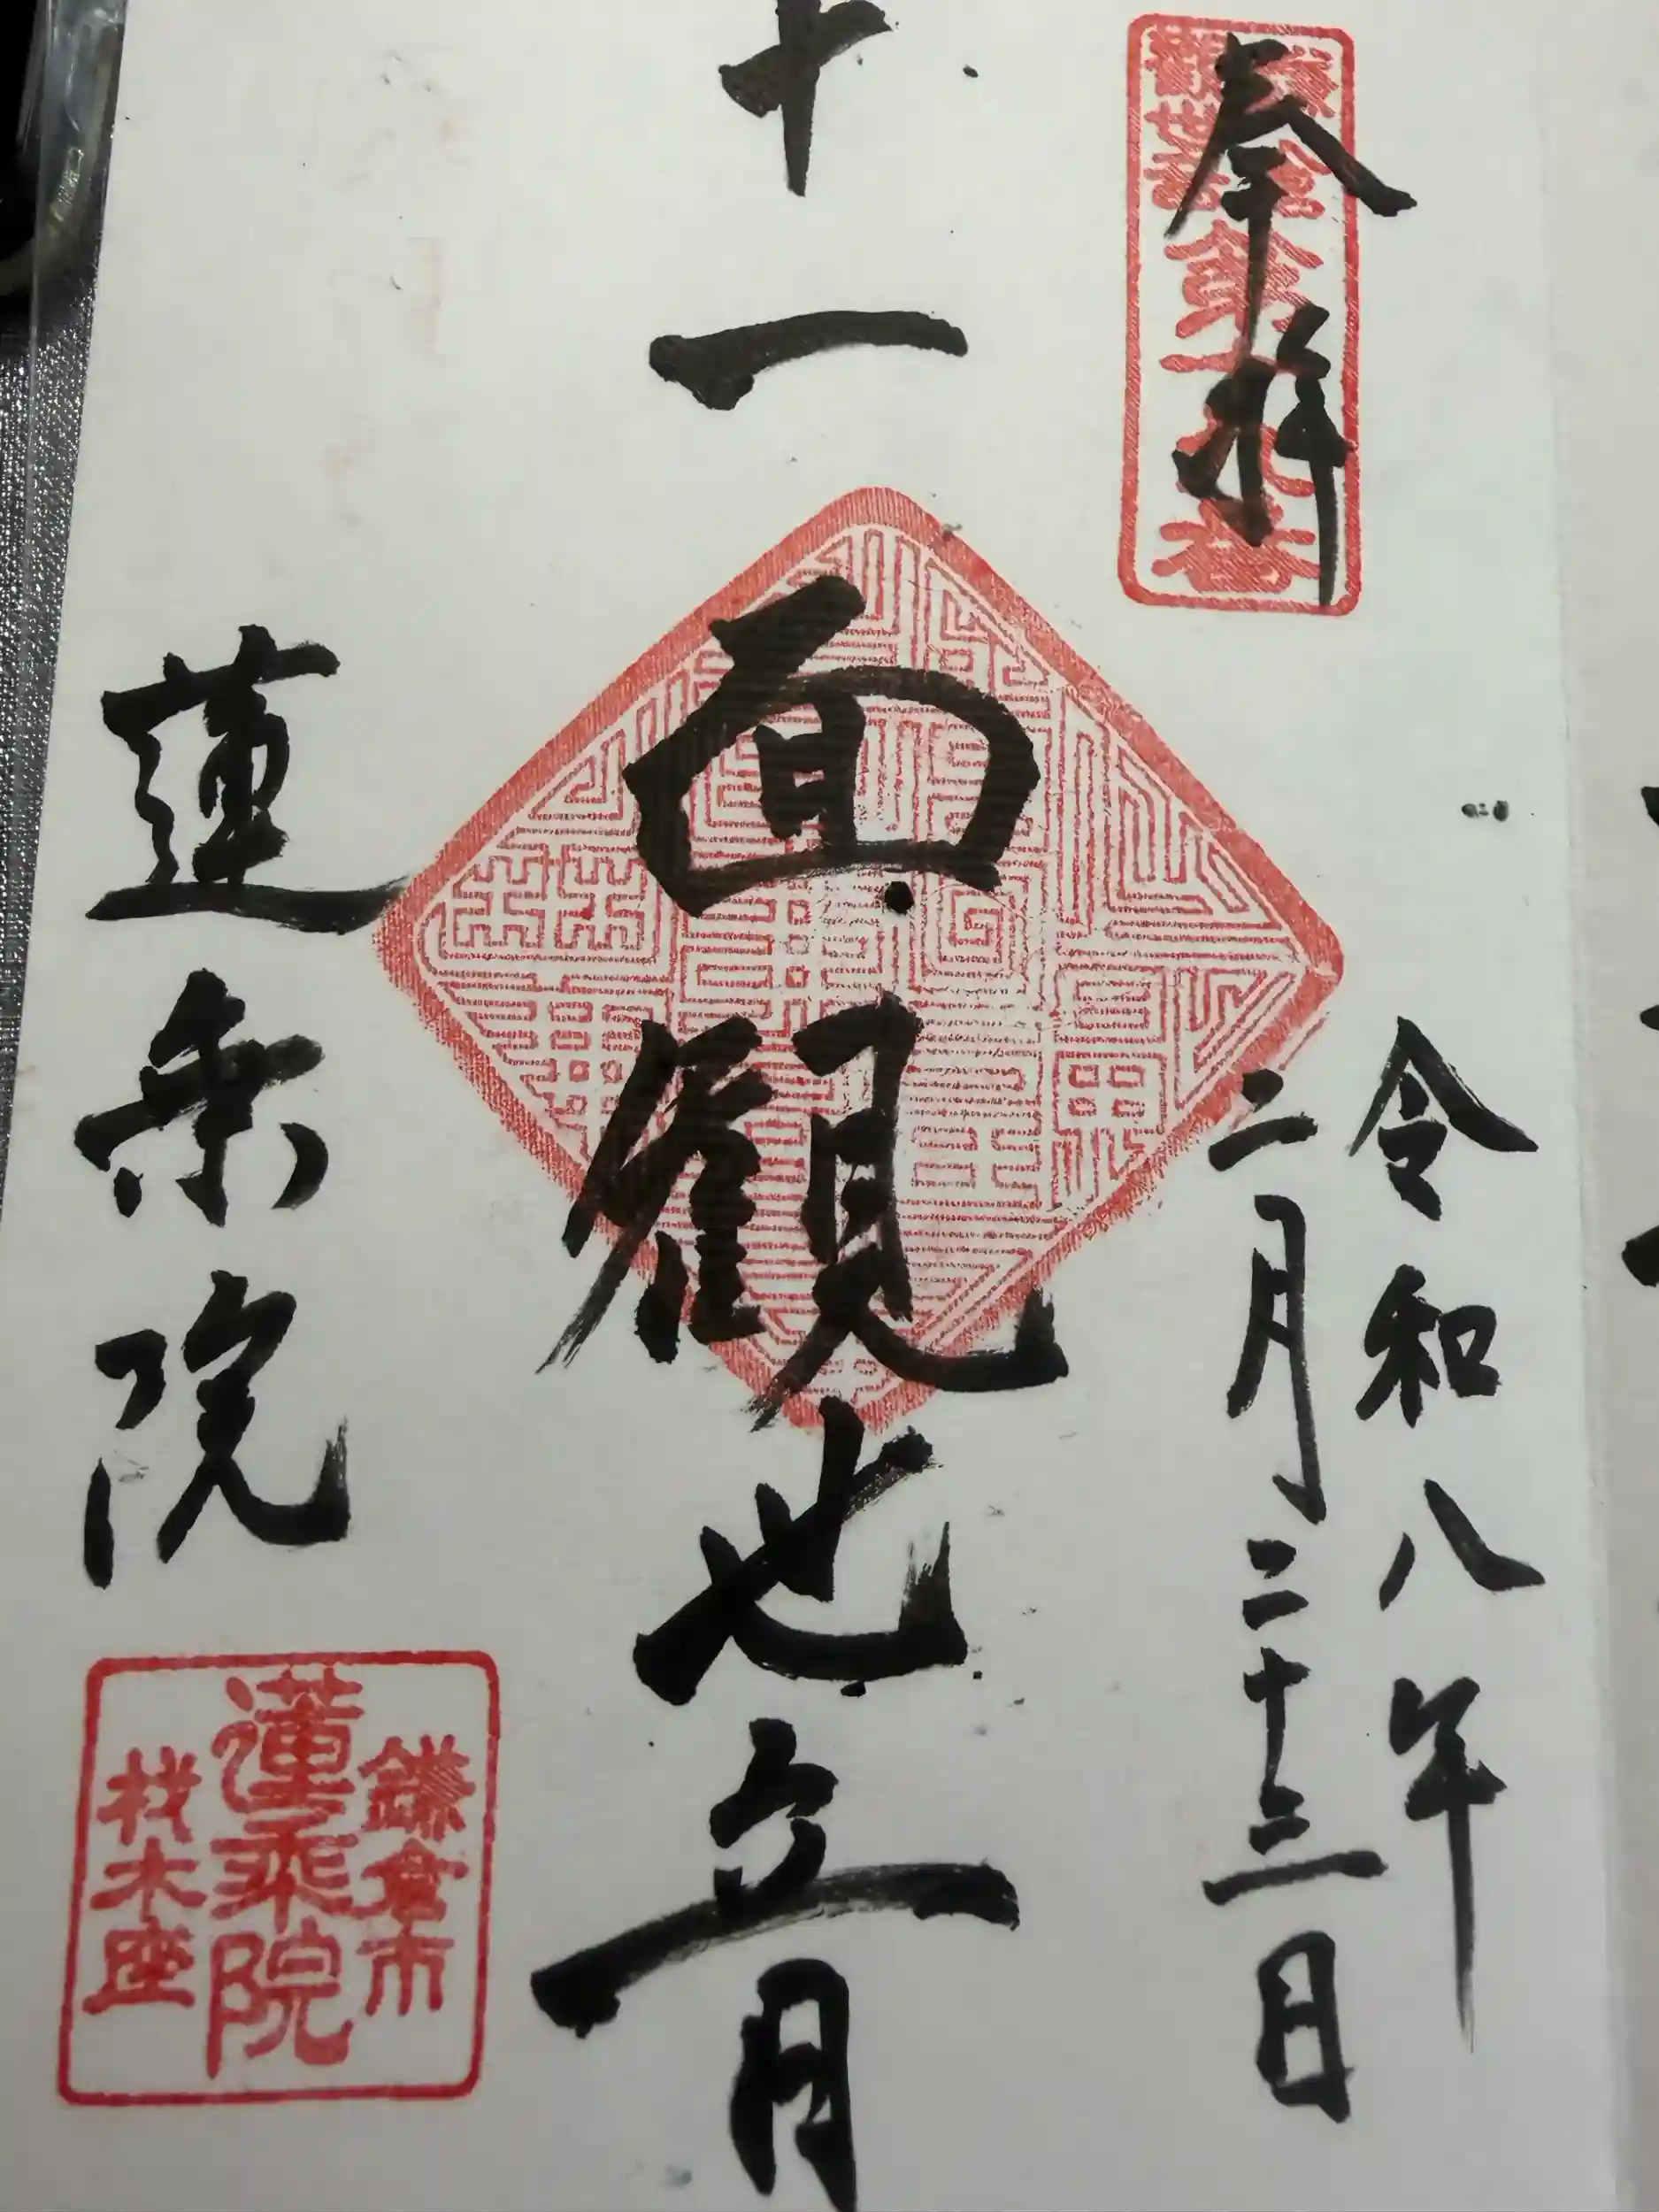 奉拝
第十九番
令和八年
二月二十三日
十一面観世音
蓮乗院
鎌倉市
蓮乗院
材木座